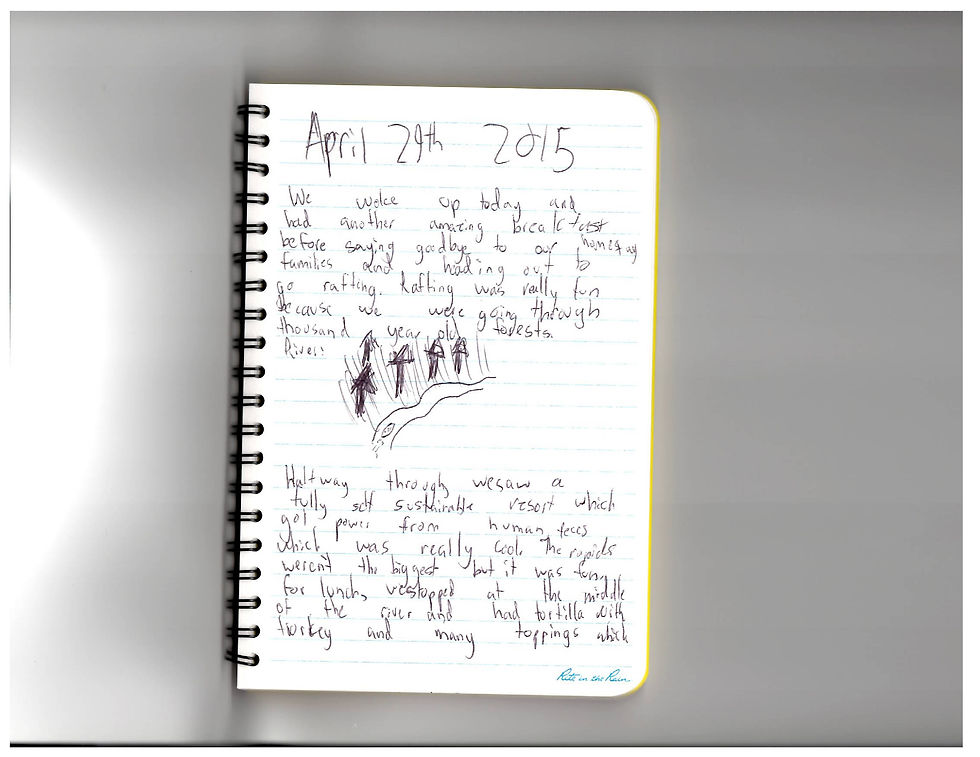 April 29th 2015
We woke up today and
had another amazing breakfast
before saying goodbye to our homestay
families and heading out to
go rafting. Rafting was really fun
because we were going through
thousand year old forests.
River:
Halfway through we saw a
fully self sustainable resort which
got power from human feces
which was really cool. The rapids
weren't the biggest but it was fun,
for lunch, we stopped at the middle
of the river and had tortilla with
turkey and many toppings which
Rite in the Rain